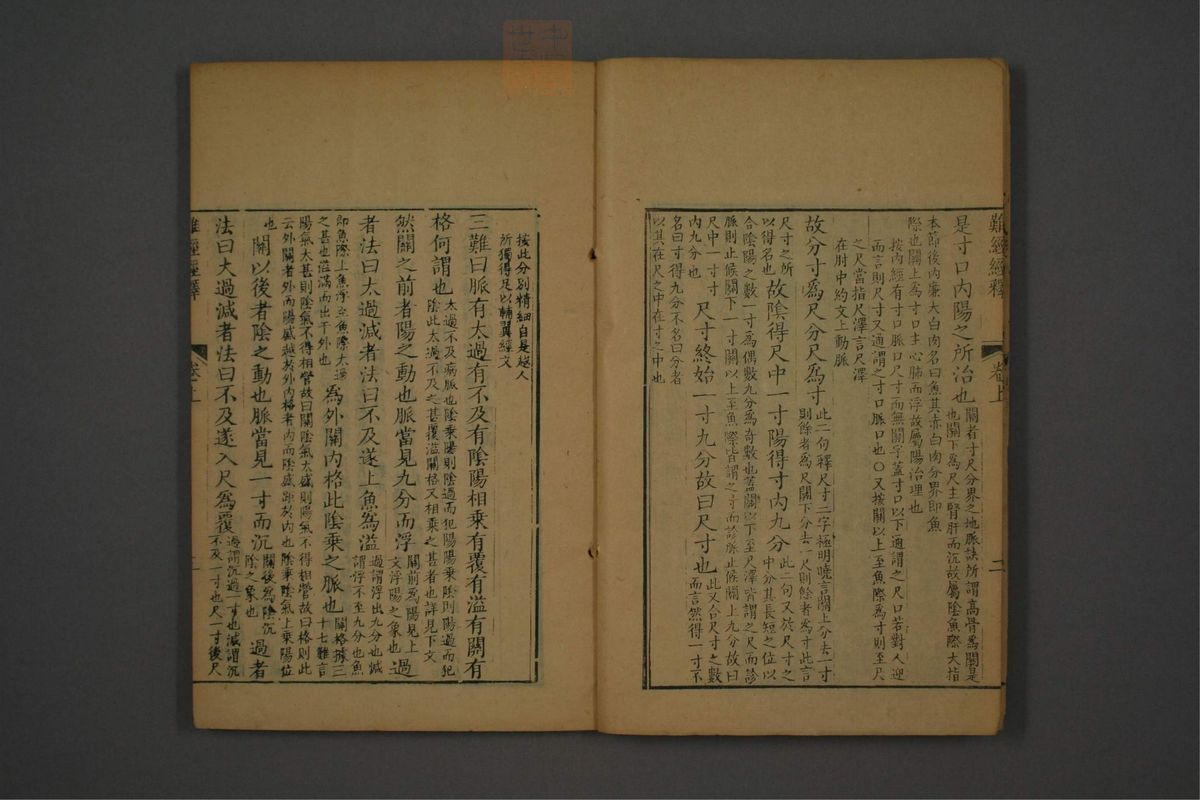 難經經釋
卷上
二
是寸口內陽之所治也關者寸尺分界之地脈訣所謂高骨爲關是也關下爲尺主腎肝而沉故屬陰魚際大指
本節後內廉大白肉名曰魚其赤白肉分界卽魚
際也關上爲寸口主心肺而浮故屬陽治理也
按內經有寸口脈口尺寸而無關字蓋寸口以下通謂之尺口若對人迎
而言則尺寸又通謂之寸口脈口也〇又按關以上至魚際爲寸則至尺
之尺當指尺澤言尺澤
在肘中約文上動脈
故分寸爲尺分尺爲寸此二句釋尺寸二字極明曉言關上分去一寸則餘者爲尺關下分去一尺則餘者爲寸此言
尺寸之所以得名也故陰得尺中一寸陽得寸內九分此二句又於尺寸之中分其長短之位以
合陰陽之數一寸爲偶數九分爲奇數也蓋關以下至尺澤皆謂之尺而診
脈則止候關下一寸關以上至魚際皆謂之寸而診脈止候關上九分故曰
尺中一寸寸內九分也尺寸終始一寸九分故曰尺寸也此又合尺寸之數而言然得一寸不
名曰寸得九分不名曰分者
以其在尺之中在寸之中也
按此分別精細自是越人
所獨得足以輔翼經文
三難曰脈有太過有不及有陰陽相乘有覆有溢有關有
格何謂也太過不及病脈也陰乘陽則陰過而犯陽陽乘陰則陽過而犯陰此太過不及之甚覆溢關格又相乘之甚者也詳見下文
然關之前者陽之動也脈當見九分而浮關前爲陽見上文浮陽之象也過
者法曰太過減者法曰不及遂上魚爲溢過謂浮出九分也減謂浮不至九分也魚
卽魚際上魚浮至魚際太過之甚也溢滿而出于外也爲外關內格此陰乘之脈也關格據三十七難言
陽氣太甚則陰氣不得相營故曰關陰氣太盛則陽氣不得相營故曰格則此
云外關者外而陽盛越於外內格者內而陰盛距於內也陰乘陰氣上乘陽位
也關以後者陰之動也脈當見一寸而沉關後爲陰沉陰之象也過者
法曰太過減者法曰不及遂入尺爲覆過謂沉過一寸也減謂沉不及一寸也尺一寸後尺
難經經釋
卷上